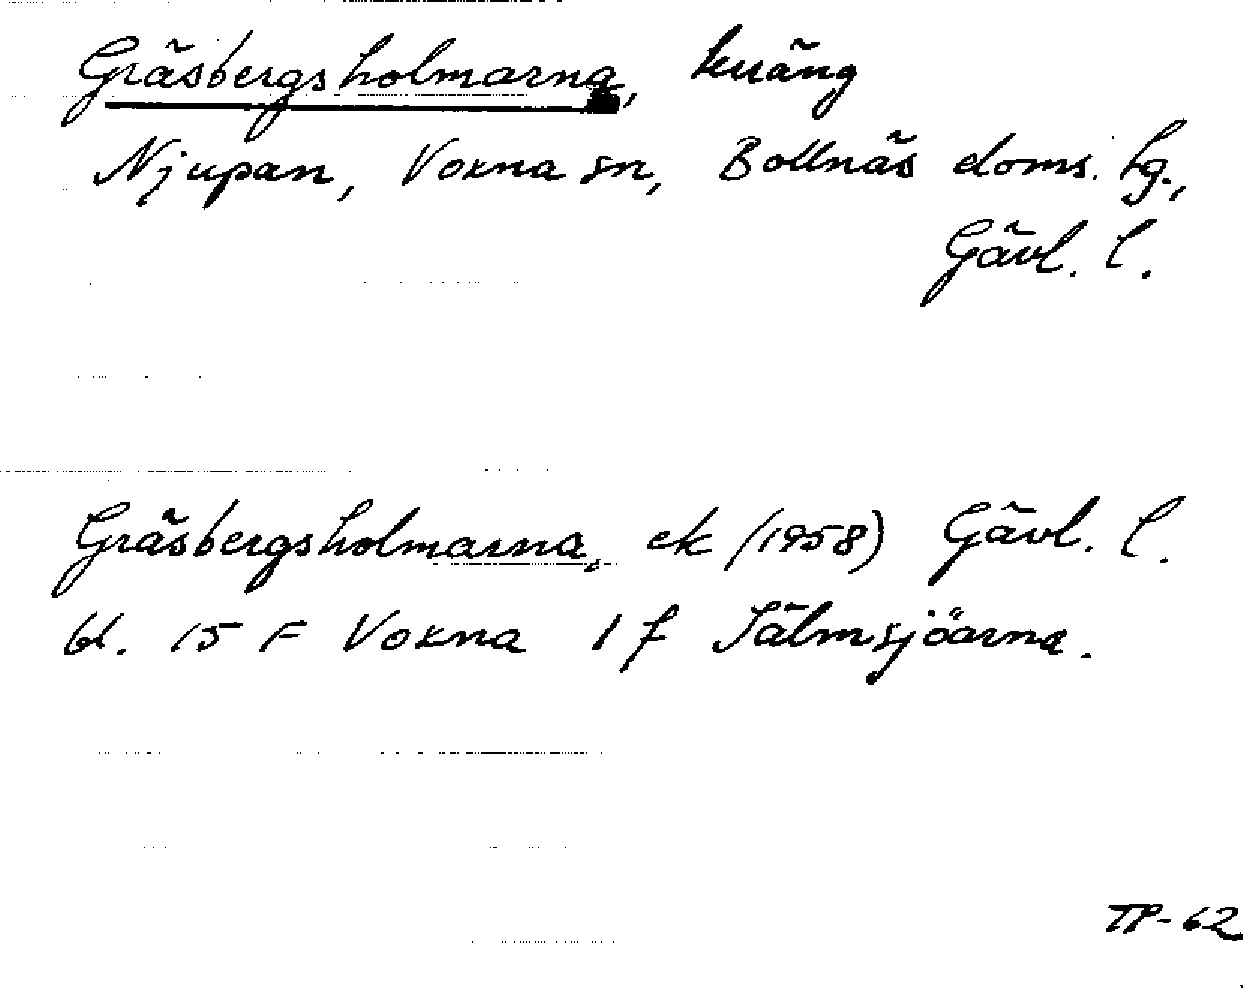 Gräsbergsholmarna, kväng
Njupan, Voxna sn, Bollnäs doms. hg.,
Gävl. l.
Gräsbergsholmarna, ek (1958) Gävl. l.
bl. 15 F Voxna 1 f Tälmsjöarna.
TP-62